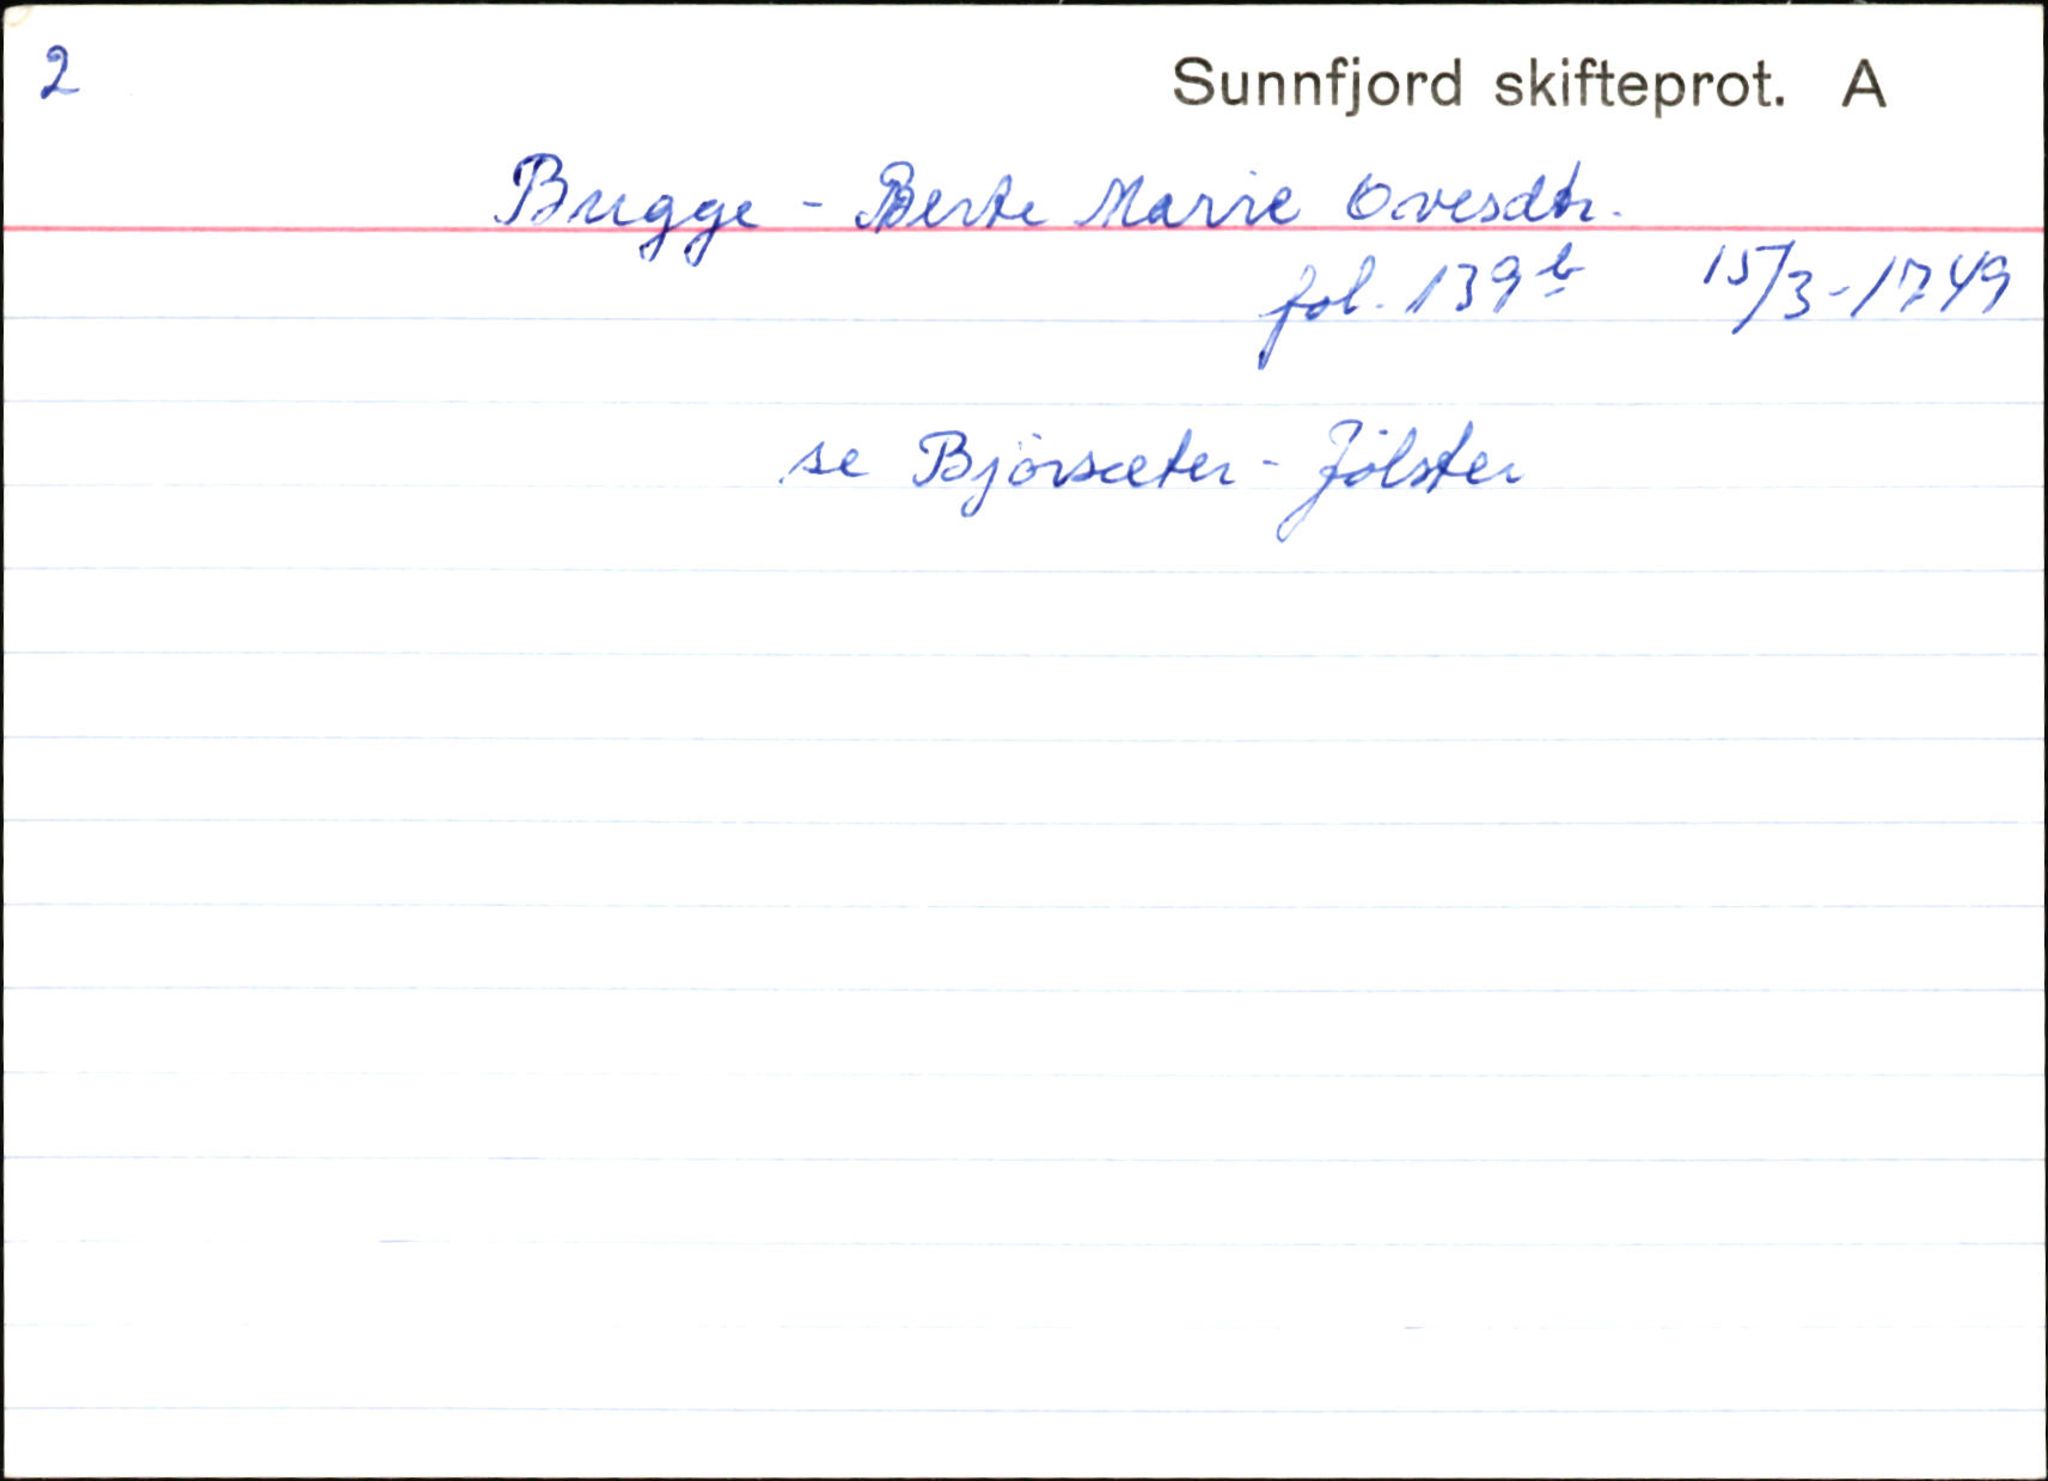 2
Sunnfjord skifteprot. A
Bugge - Berte Marie Ovesdtr.
fol. 139b 15/3-1749
se Bjørsæter - Jølster